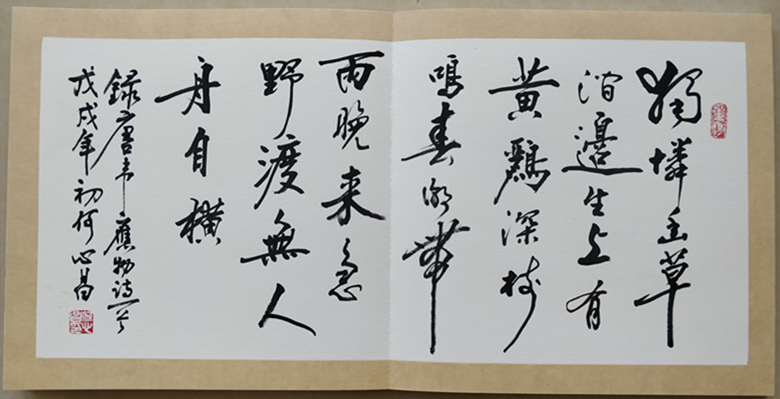 獨憐幽草
澗邊生上有
黄鸝深樹
鳴春潮帶
雨晚来急
野渡無人
舟自横
録唐韋應物詩一首
戊戌年初何心昌